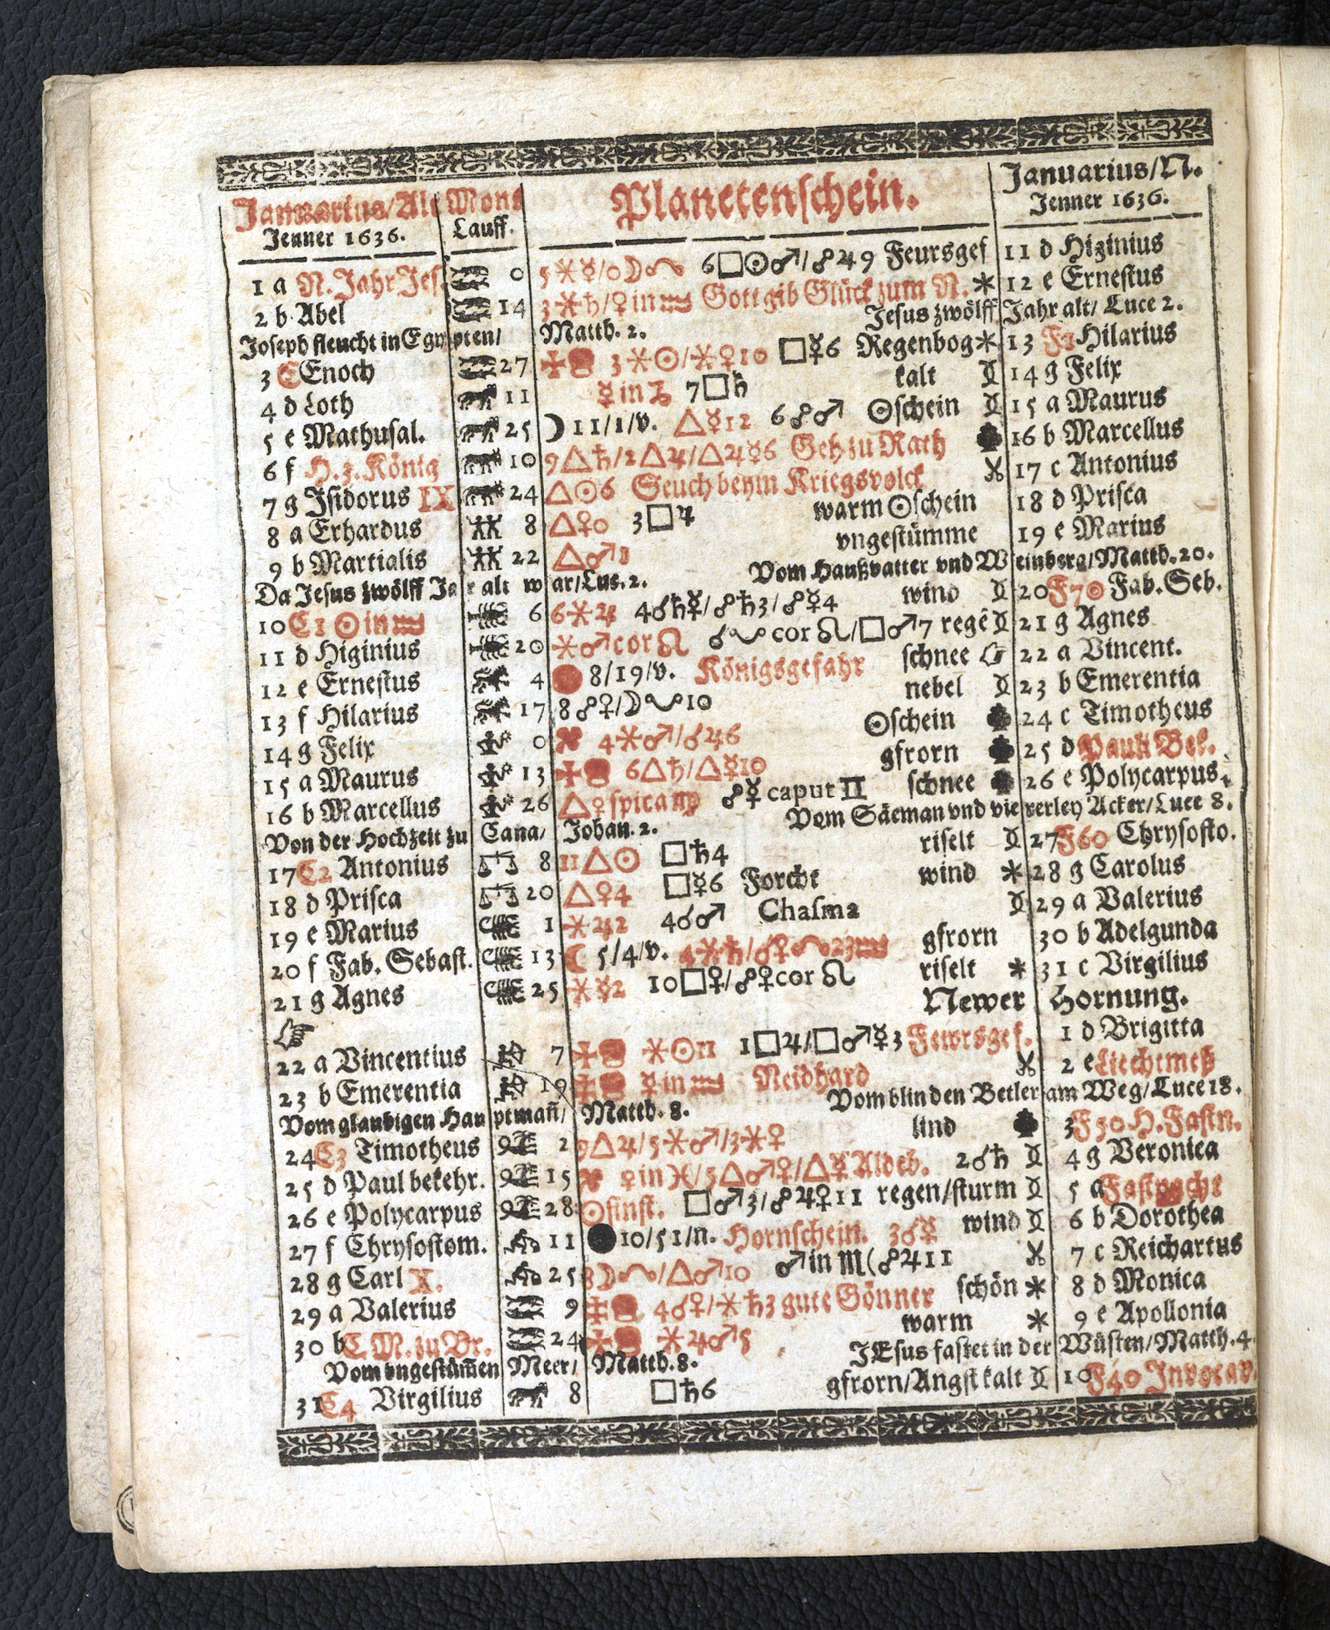 Januarius/Alt Mons Planetenschein. Januarius/N.
Jenner 1636. Lauff. Jenner 1636.
1 a N. Jahr Jes. ♓ 0 5⚹☿/0☽☊ 6□☉♂/☍♃9 Feursgef 11 d Higinius
2 b Abel ♓ 14 3⚹♄/♀in♒ Gott gib Glück zum N. * 12 e Ernestus
Jesus zwölff Jahr alt/ Luce 2.
Joseph fleucht in Egypten/ Matth. 2.
3 C Enoch ♓ 27 3⚹☉/⚹♀10 □☿6 Regenbog * 13 F1 Hilarius
4 d Loth ♈ 11 ☿in♑ 7□♄ kalt 14 g Felix
5 e Mathusal. ♈ 25 ☽11/1/v. △☿12 6☍♂ ☉schein 15 a Maurus
6 f H. 3. König ♉ 10 9△♄/2△♃/△♃☿6 Geh zu Rath ♣ 16 b Marcellus
7 g Isidorus IX ♉ 24 △☉6 Seuch beym Kriegsvolck 17 c Antonius
8 a Erhardus ♊ 8 △♀0 3□♃ warm ☉schein 18 d Prisca
9 b Martialis ♊ 22 △♂1 vngestümme 19 e Marius
Da Jesus zwölff Jar alt war/Luc. 2. Vom Haußvatter vnd Weinberg/Matth. 20.
10 C1 ☉in♒ ♋ 6 6⚹♃ 4☌♄☿/☍♄3/☍☿4 wind 20 F70 Fab. Seb.
11 d Higinius ♋ 20 ⚹♂cor♌ ☌☋cor♌/□♂7 regē 21 g Agnes
12 e Ernestus ♌ 4 8/19/v. Königsgefahr schnee ☞ 22 a Vincent.
13 f Hilarius ♌ 17 8☍♀/☽☋10 nebel 23 b Emerentia
14 g Felix ♍ 0 4⚹♂/☌♃6 ☉schein ♣ 24 c Timotheus
15 a Maurus ♍ 13 6△♄/△☿10 gfrorn ♣ 25 d Pauli Bek.
16 b Marcellus ♍ 26 △♀spica♍ ☍☿caput♊ schnee ♣ 26 e Polycarpus.
Von der Hochzeit zu Cana/ Johan. 2. Vom Säeman vnd vierterley Acker/Luce 8.
17 C2 Antonius ♎ 8 11△☉ □♄4 riselt 27 F60 Chrysosto.
18 d Prisca ♎ 20 △♀4 □☿6 Forcht wind * 28 g Carolus
19 e Marius ♏ 1 ⚹♃2 4☌♂ Chasma 29 a Valerius
20 f Fab. Sebast. ♏ 13 ☾5/4/v. 4⚹♄/☌♀☊23♒ gfrorn 30 b Adelgunda
21 g Agnes ♏ 25 ⚹☿2 10□♀/☍♀cor♌ riselt * 31 c Virgilius
☞ Newer Hornung.
22 a Vincentius ♐ 7 ⚹☉11 1□♃/□♂☿3 Fewrsgef. 1 d Brigitta
23 b Emerentia ♐ 19 ☿in♒ Neidhard 2 e Liechtmeß
Vom glaubigen Hauptmañ/ Matth. 8. Vom blinden Betler am Weg/Luce 18.
24 C3 Timotheus ♑ 2 9△♃/5⚹♂/3⚹♀ lind ♣ 3 F50 H. Fastn.
25 d Paul bekehr. ♑ 15 ♀in♓/5△♂♀/△☿Aldeb. 2☌♄ 4 g Veronica
26 e Polycarpus ♑ 28 ☉finst. □♂3/☍♃♀11 regen/sturm 5 a Fastnacht
27 f Chrysostom. ♒ 11 ●10/51/n. Hornschein. 3☌☿ wind 6 b Dorothea
28 g Carl X. ♒ 25 8☽☊/△♂10 ♂in♏(☍♃11 7 c Reichartus
29 a Valerius ♓ 9 4☌♀/⚹♄3 gute Gönner schön * 8 d Monica
30 b C. M. zu Br. ♓ 24 ⚹♃♂5 warm * 9 e Apollonia
Vom vngestüm̃en Meer/ Matth. 8. JEsus fastet in der Wüsten/Matth. 4
31 C4 Virgilius ♈ 8 □♄6 gfrorn/Angst kalt 10 F40 Invocav.